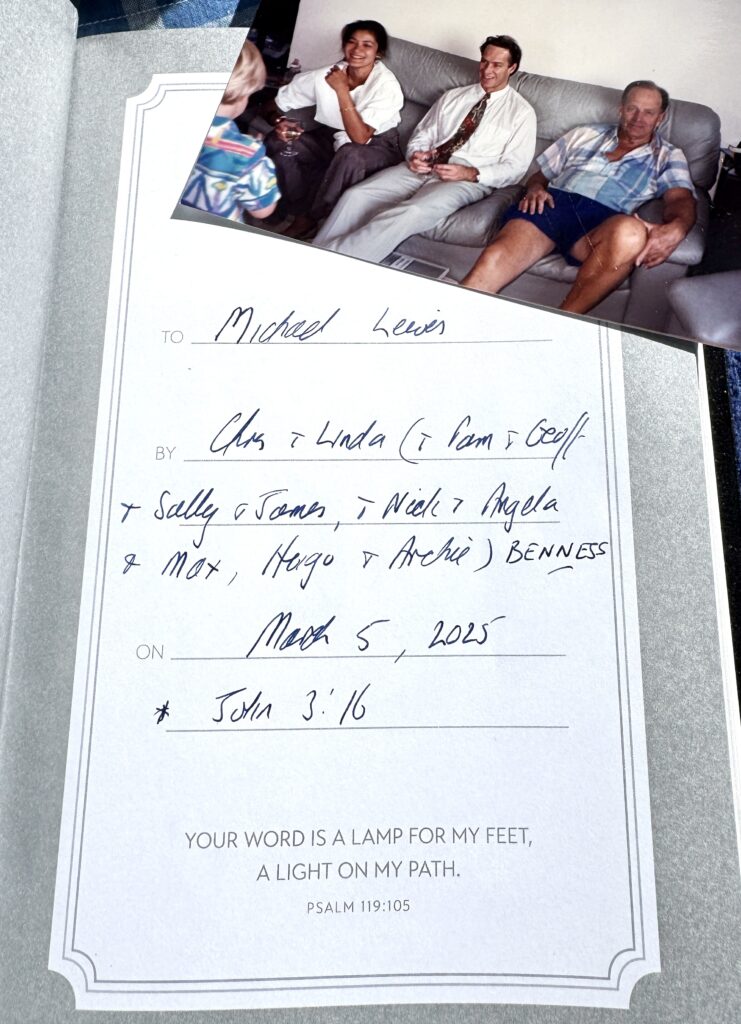 TO Michael Lewis
BY Chris + Linda (+ Pam + Geoff
+ Sally + James, + Nick + Angela
+ Max, Hugo + Archie) BENNESS
ON March 5, 2025
* John 3:16
YOUR WORD IS A LAMP FOR MY FEET,
A LIGHT ON MY PATH.
PSALM 119:105